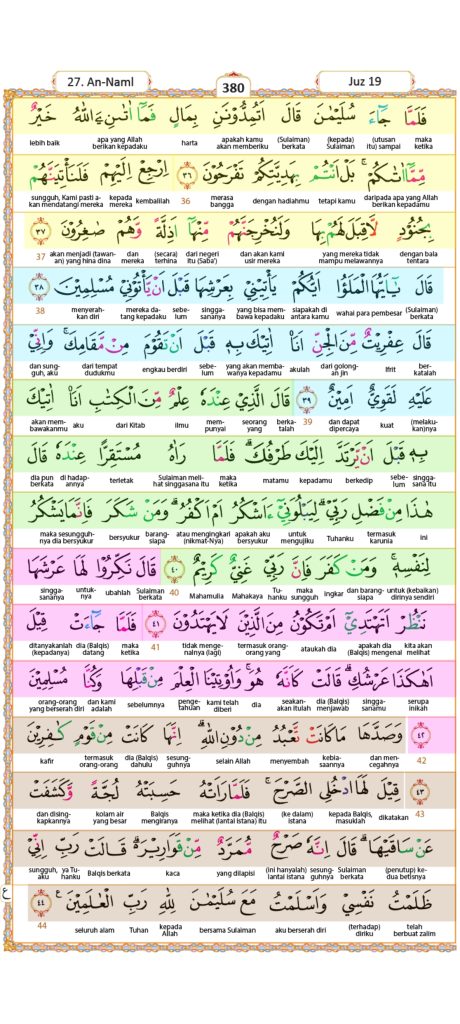 27. An-Naml 380 Juz 19
فَلَمَّا جَاۤءَ سُلَيْمٰنَ قَالَ اَتُمِدُّوْنَنِ بِمَالٍ فَمَآ اٰتٰىنِ َۧ اللّٰهُ خَيْرٌ
maka ketika (utusan itu) sampai (kepada) Sulaiman (Sulaiman) berkata apakah kamu akan memberiku harta apa yang Allah berikan kepadaku lebih baik
مِّمَّآ اٰتٰىكُمْۚ بَلْ اَنْتُمْ بِهَدِيَّتِكُمْ تَفْرَحُوْنَ ٣٦ اِرْجِعْ اِلَيْهِمْ فَلَنَأْتِيَنَّهُمْ
daripada apa yang Allah berikan kepadamu tetapi kamu dengan hadiahmu merasa bangga 36 kembalilah kepada mereka sungguh, Kami pasti a-kan mendatangi mereka
بِجُنُوْدٍ لَّا قِبَلَ لَهُمْ بِهَا وَلَنُخْرِجَنَّهُمْ مِّنْهَآ اَذِلَّةً وَّهُمْ صٰغِرُوْنَ ٣٧
dengan bala tentara yang mereka tidak mampu melawannya dan akan kami usir mereka dari negeri itu (Saba') (secara) terhina dan mereka akan menjadi (tawan-an) yang hina dina 37
قَالَ يٰٓاَيُّهَا الْمَلَؤُا اَيُّكُمْ يَأْتِيْنِيْ بِعَرْشِهَا قَبْلَ اَنْ يَّأْتُوْنِيْ مُسْلِمِيْنَ ٣٨
(Sulaiman) berkata wahai para pembesar siapakah di antara kamu yang bisa mem-bawa kepadaku singga-sananya sebe-lum mereka da-tang kepadaku menyerah-kan diri 38
قَالَ عِفْرِيْتٌ مِّنَ الْجِنِّ اَنَا۠ اٰتِيْكَ بِهٖ قَبْلَ اَنْ تَقُوْمَ مِنْ مَّقَامِكَۚ وَاِنِّيْ
ber-katalah Ifrit dari golong-an jin akulah yang akan memba-wanya kepadamu sebe-lum engkau berdiri dari tempat dudukmu dan sung-guh, aku
عَلَيْهِ لَقَوِيٌّ اَمِيْنٌ ٣٩ قَالَ الَّذِيْ عِنْدَهٗ عِلْمٌ مِّنَ الْكِتٰبِ اَنَا۠ اٰتِيْكَ
(melaku-kan)nya kuat dan dapat dipercaya 39 berka-talah seorang yang mem-punyai ilmu dari Kitab aku akan mem-bawakanmu
بِهٖ قَبْلَ اَنْ يَّرْتَدَّ اِلَيْكَ طَرْفُكَۗ فَلَمَّا رَاٰهُ مُسْتَقِرًّا عِنْدَهٗ قَالَ
singga-sana itu sebe-lum berkedip kepadamu matamu maka ketika Sulaiman meli-hat singgasana itu terletak di hadap-annya dia pun berkata
هٰذَا مِنْ فَضْلِ رَبِّيْۗ لِيَبْلُوَنِيْٓ ءَاَشْكُرُ اَمْ اَكْفُرُۗ وَمَنْ شَكَرَ فَاِنَّمَا يَشْكُرُ
ini termasuk karunia Tuhanku untuk mengujiku apakah aku bersyukur atau mengingkari (nikmat-Nya) barang-siapa bersyukur maka sesungguh-nya dia bersyukur
لِنَفْسِهٖۚ وَمَنْ كَفَرَ فَاِنَّ رَبِّيْ غَنِيٌّ كَرِيْمٌ ٤٠ قَالَ نَكِّرُوْا لَهَا عَرْشَهَا
untuk (kebaikan) dirinya sendiri dan barang-siapa ingkar maka sungguh Tu-hanku Mahakaya Mahamulia 40 Sulaiman berkata ubahlah untuk-nya singga-sananya
نَنْظُرْ اَتَهْتَدِيْٓ اَمْ تَكُوْنُ مِنَ الَّذِيْنَ لَا يَهْتَدُوْنَ ٤١ فَلَمَّا جَاۤءَتْ قِيْلَ
kita akan melihat apakah dia (Balqis) mengenal ataukah dia termasuk orang-orang yang tidak menge-nalnya (lagi) 41 maka ketika dia (Balqis) datang ditanyakanlah (kepadanya)
اَهٰكَذَا عَرْشُكِۗ قَالَتْ كَاَنَّهٗ هُوَۚ وَاُوْتِيْنَا الْعِلْمَ مِنْ قَبْلِهَا وَكُنَّا مُسْلِمِيْنَ
serupa inikah singga-sanamu dia (Balqis) menjawab seakan-akan itulah dia kami telah diberi penge-tahuan sebelumnya dan kami adalah orang-orang yang berserah diri
وَصَدَّهَا مَا كَانَتْ تَّعْبُدُ مِنْ دُوْنِ اللّٰهِۗ اِنَّهَا كَانَتْ مِنْ قَوْمٍ كٰفِرِيْنَ ٤٢
dan men-cegahnya kebia-saannya menyembah selain Allah sesung-guhnya dia (Balqis) dahulu termasuk orang-orang kafir 42
قِيْلَ لَهَا ادْخُلِى الصَّرْحَۚ فَلَمَّا رَاَتْهُ حَسِبَتْهُ لُجَّةً وَّكَشَفَتْ ٤٣
dikatakan kepada Balqis, masuklah (ke dalam) istana maka ketika dia (Balqis) melihat (lantai istana) itu Balqis mengiranya kolam air yang besar dan dising-kapkannya 43
عَنْ سَاقَيْهَاۗ قَالَ اِنَّهٗ صَرْحٌ مُّمَرَّدٌ مِّنْ قَوَارِيْرَۗ قَالَتْ رَبِّ اِنِّيْ
(penutup) ke-dua betisnya Sulaiman berkata sesung-guhnya (ini hanyalah) lantai istana yang dilapisi kaca Balqis berkata ya Tu-hanku sungguh, aku
ظَلَمْتُ نَفْسِيْ وَاَسْلَمْتُ مَعَ سُلَيْمٰنَ لِلّٰهِ رَبِّ الْعٰلَمِيْنَ ࣖ ٤٤
telah berbuat zalim (terhadap) diriku aku berserah diri bersama Sulaiman kepada Allah Tuhan seluruh alam 44
ع